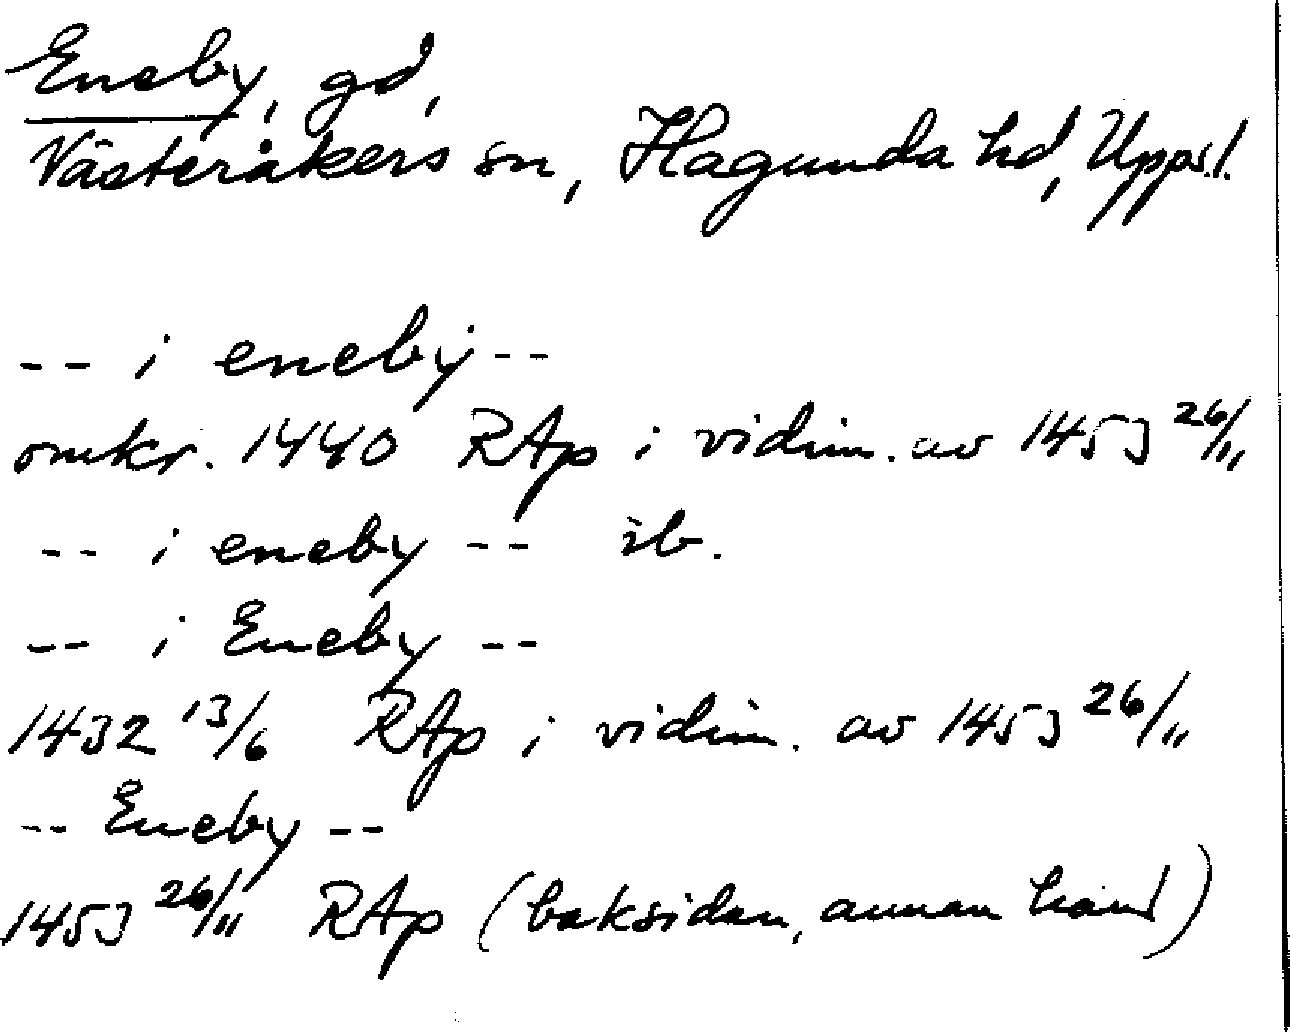 Eneby, gd,
Västeråkers sn, Hagunda hd, Uppsl.
-- i enebÿ --
omkr. 1440 RAp i vidim. av 1453 26/11
-- i eneby -- ib.
-- i Eneby --
1432 13/6 RAp i vidim. av 1453 26/11
-- Eneby --
1453 26/11 RAp (baksidan, annan hand)